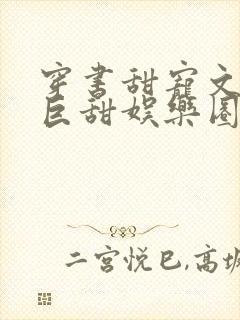 穿书甜宠文
巨甜娱乐圈
二宫悦巳,高坂